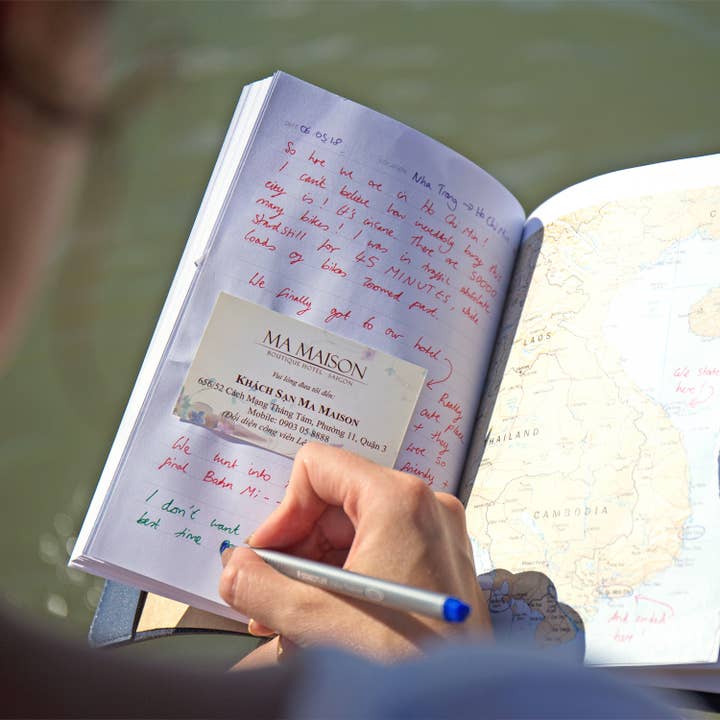 DATE 06.05.18
LOCATION Nha Trang → Ho Chi Min
So here we are in Ho Chi Min!
I can't believe how incredibly busy this
city is! It's insane. There are 50000
many bikes! I was in traffic absolute
standstill for 45 MINUTES, while
loads of bikes zoomed past.
We finally got to our hotel
MA MAISON
BOUTIQUE HOTEL - SAIGON
Vui lòng đưa tôi đến:
KHÁCH SẠN MA MAISON
656/52 Cách Mạng Tháng Tám, Phường 11, Quận 3
Mobile: 0903 05 8888
(Đối diện công viên Lê
Really
cute place
+ they
were so
friendly +
We went into
final Bahn Mi
I don't want
best time
LAOS
THAILAND
CAMBODIA
We start
here!)
And ended
here